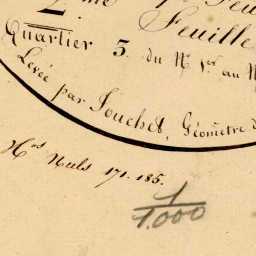 2 me
Feuille
Quartier 5. du N° 1er au N
Levée par Jouchet, Géomètre
Nos Nuls 171. 185.
1/1.000